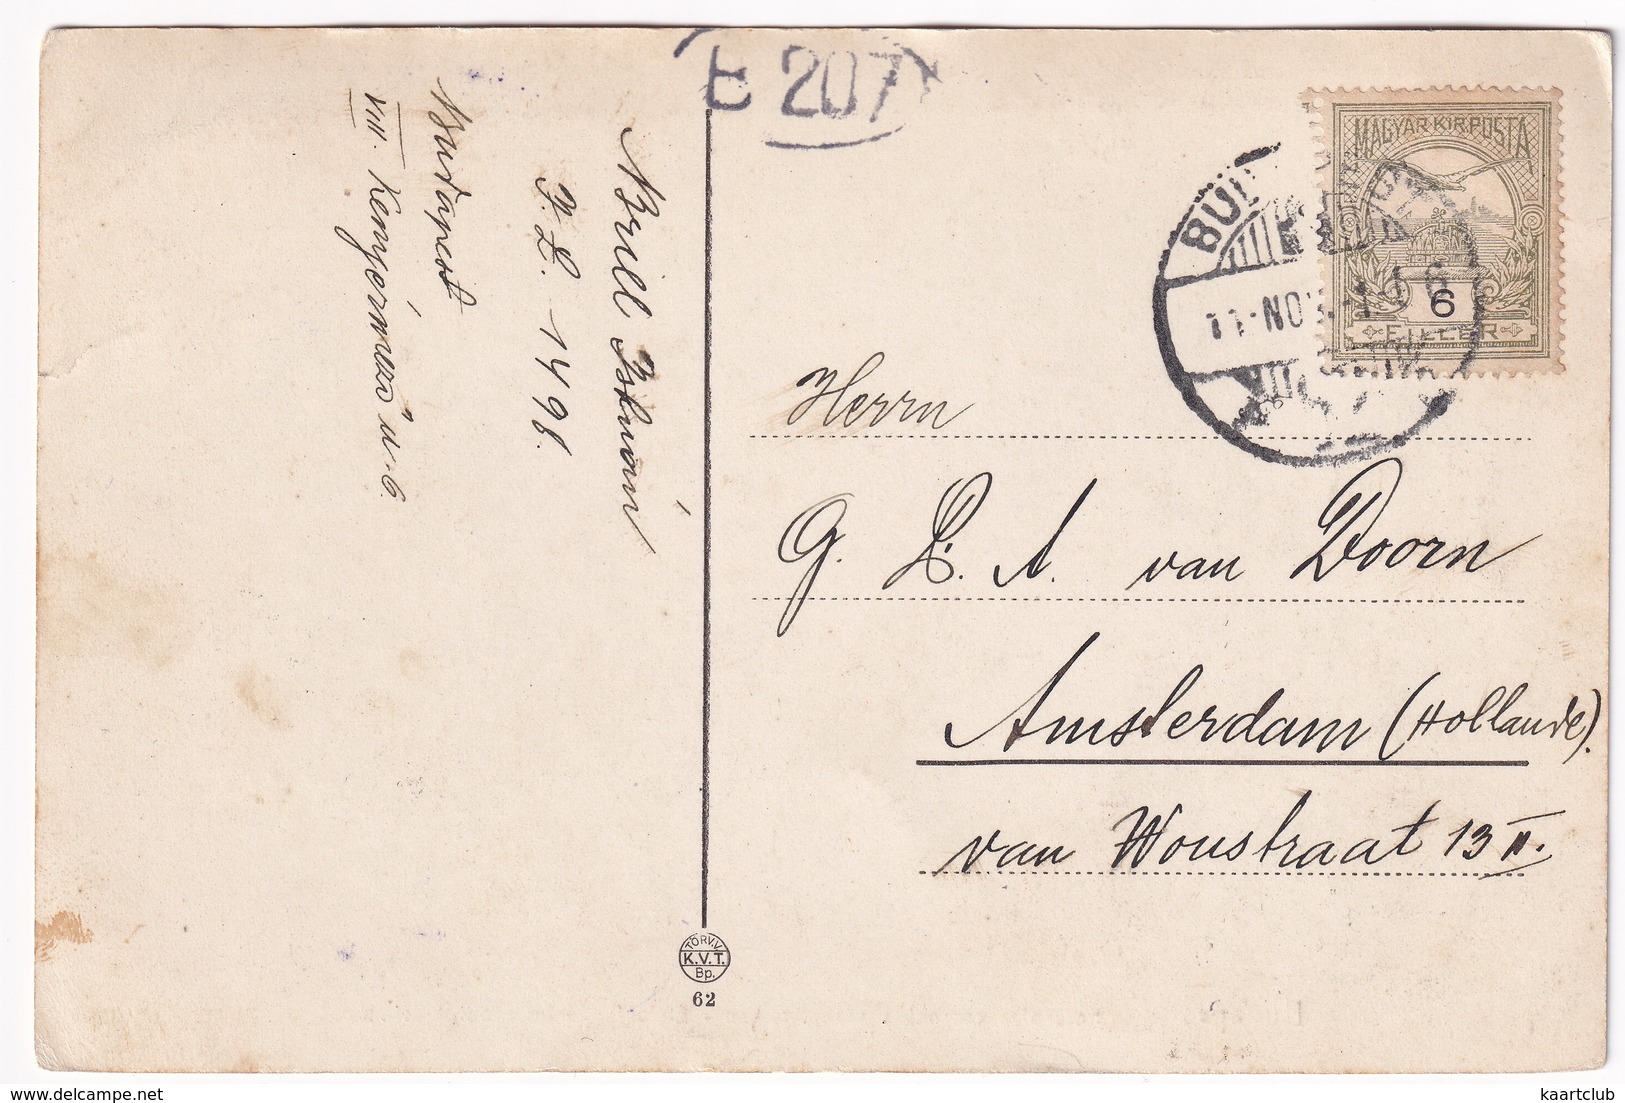 Brill István
I. L. 1498.
Budapest
VIII. Kenyérmező u. 6.
E 207
MAGYAR KIR. POSTA
6
FILLÉR
BU
11-NOV.
Herrn
G. L. A. van Doorn
Amsterdam (Hollande).
van Woustraat 13 II.
TÖRV.V.
K.V.T.
Bp.
62
kaartclub